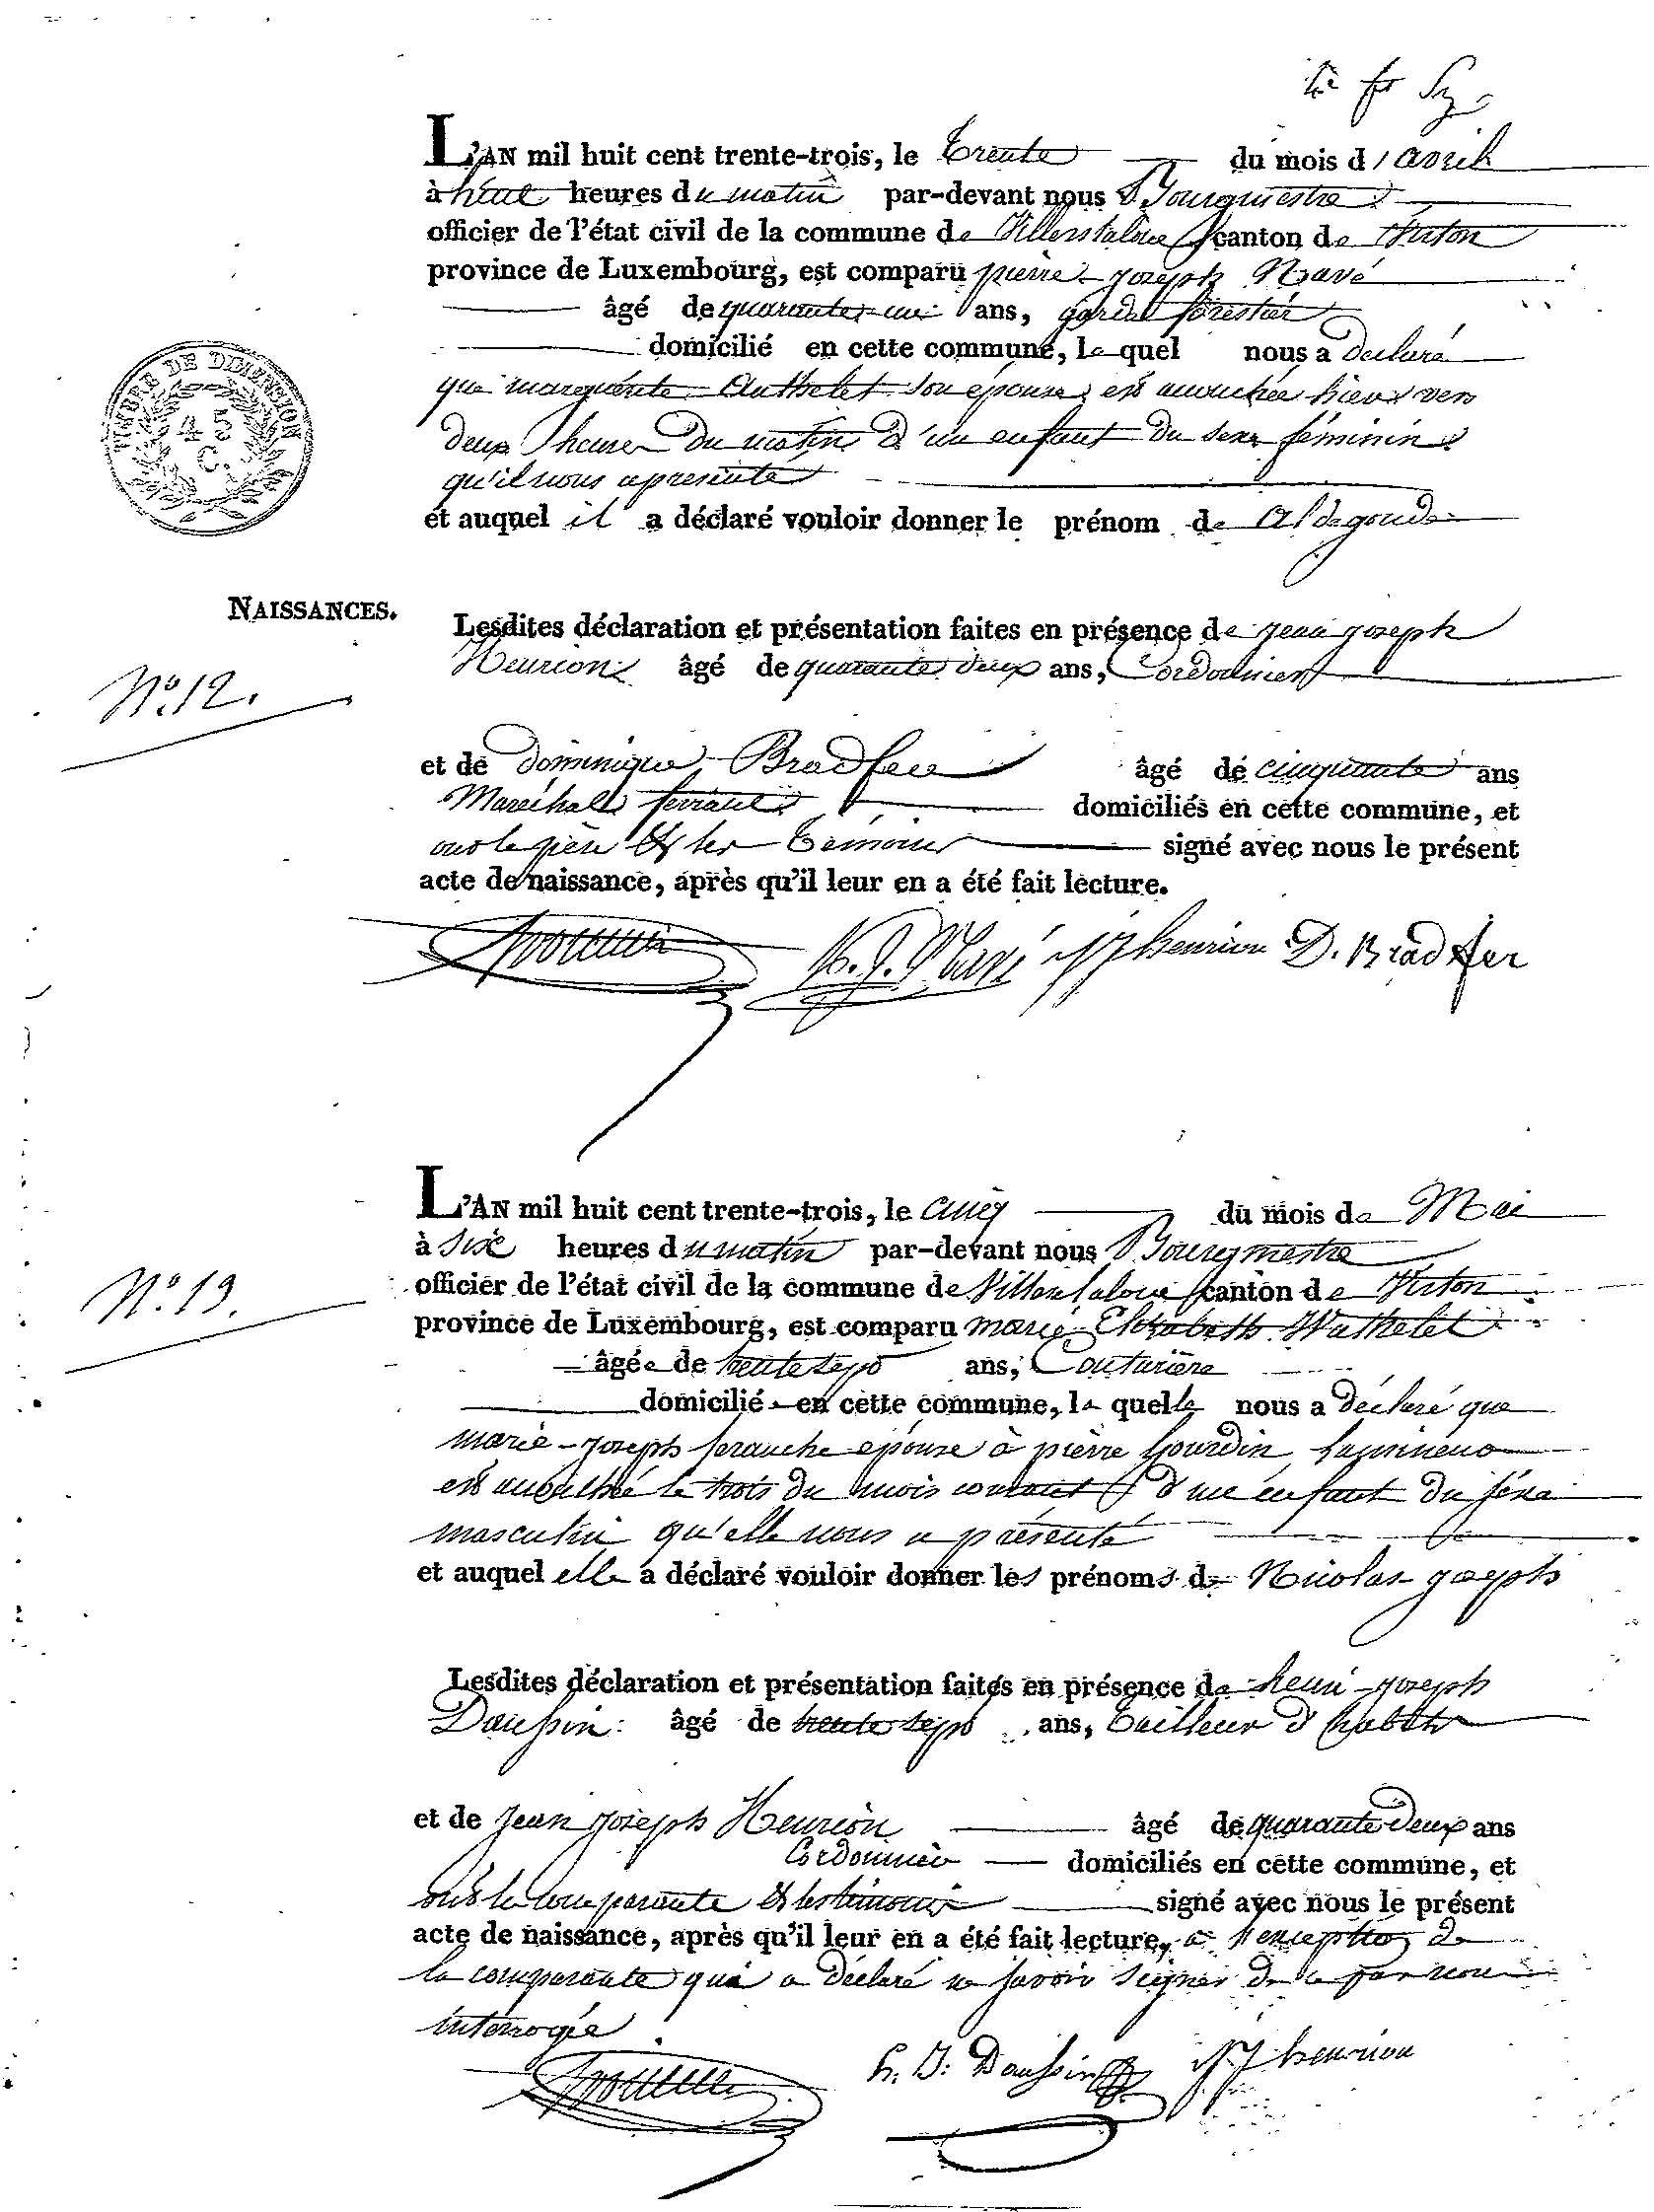 L'AN mil huit cent trente-trois, le trente du mois d'avril
à huit heures du matin par-devant nous Bourgmestre
officier de l'état civil de la commune de Villers la loue canton de Virton
province de Luxembourg, est comparu pierre-joseph Navé
âgé de quarante un ans, garde forestier
domicilié en cette commune, le quel nous a declaré
que marguérite Authelet son épouse est accouchée hier vers
deux heures du matin d'un enfant du sexe féminin
qu'il nous a présenté
et auquel il a déclaré vouloir donner le prénom de Aldegonde
TIMBRE DE DIMENSION
45
C.
NAISSANCES.
N.º 12.
Lesdites déclaration et présentation faites en présence de jean joseph
Henrion âgé de quarante deux ans, Cordonnier
et de dominique Bradfer âgé de cinquante ans
Maréchal ferrant domiciliés en cette commune, et
ont le père et les témoins signé avec nous le présent
acte de naissance, après qu'il leur en a été fait lecture.
P. J. Navé JJ henrion D. Bradfer
L'AN mil huit cent trente-trois, le cinq du mois de Mai
à six heures du matin par-devant nous Bourgmestre
N.º 13.
officier de l'état civil de la commune de Villers la loue canton de Virton
province de Luxembourg, est comparu marie Elizabeth Wathelet
âgée de trente sept ans, Couturière
domicilié en cette commune, la quelle nous a déclaré que
marie-joseph épouse à pierre Gourdin
est accouchée le trois du mois courant d'un enfant du sexe
masculin qu'elle nous a présenté
et auquel elle a déclaré vouloir donner les prénoms de Nicolas-joseph
Lesdites déclaration et présentation faites en présence de henri-joseph
Daussin âgé de trente sept ans, tailleur d'habits
et de jean joseph Henrion âgé de quarante deux ans
Cordonnier domiciliés en cette commune, et
ont la comparante et les témoins signé avec nous le présent
acte de naissance, après qu'il leur en a été fait lecture, a l'exception de
la comparante qui a déclaré ne savoir signer de ce par nous
interrogée
h. J. Daussin JJ henrion